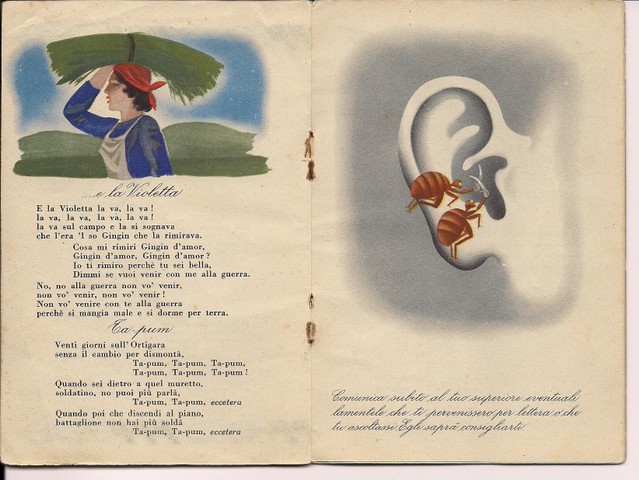 ...e la Violetta
E la Violetta la va, la va !
la va, la va, la va, la va !
la va sul campo e la si sognava
che l'era 'l so Gingin che la rimirava.
Cosa mi rimiri Gingin d'amor,
Gingin d'amor, Gingin d'amor ?
Io ti rimiro perchè tu sei bella,
Dimmi se vuoi venir con me alla guerra.
No, no alla guerra non vo' venir,
non vo' venir, non vo' venir !
Non vo' venire con te alla guerra
perchè si mangia male e si dorme per terra.
Ta-pum
Venti giorni sull'Ortigara
senza il cambio per dismontà,
Ta-pum, Ta-pum, Ta-pum,
Ta-pum, Ta-pum, Ta-pum !
Quando sei dietro a quel muretto,
soldatino, no puoi più parlà,
Ta-pum, Ta-pum, eccetera
Quando poi che discendi al piano,
battaglione non hai più soldà
Ta-pum, Ta-pum, eccetera
Comunica subito al tuo superiore eventuali
lamentele che ti pervenissero per lettera o che
tu ascoltassi. Egli saprà consigliarti